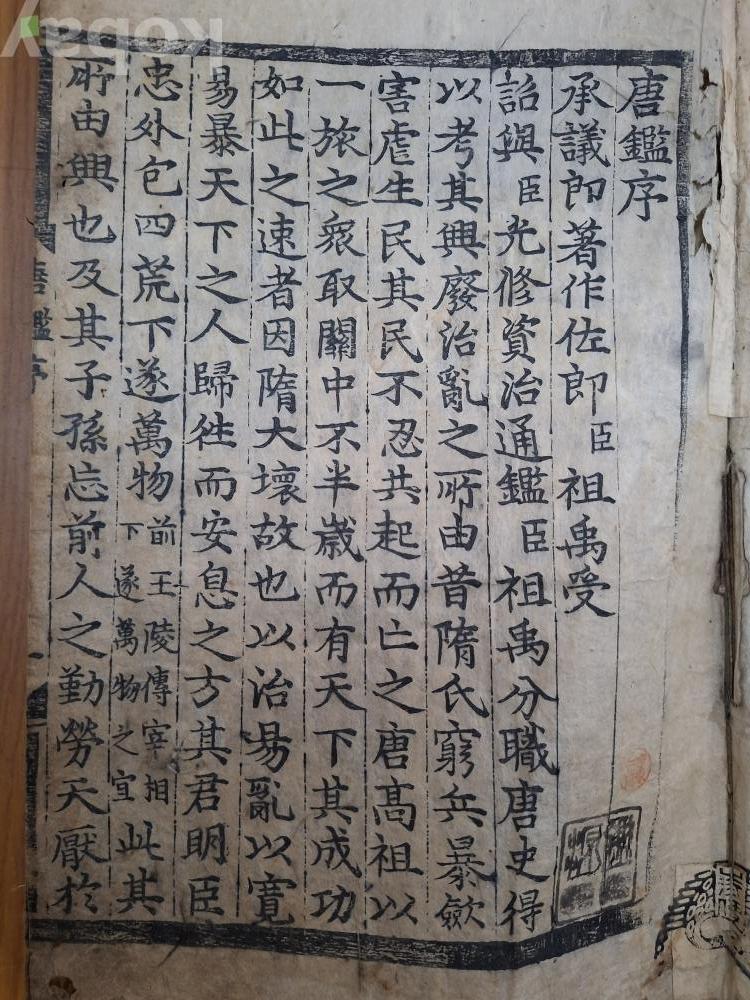 唐鑑序
承議郎著作佐郎臣祖禹受
詔與臣光修資治通鑑臣祖禹分職唐史得
以考其興廢治亂之所由昔隋氏窮兵暴歛
害虐生民其民不忍共起而亡之唐高祖以
一旅之衆取關中不半歲而有天下其成功
如此之速者因隋大壞故也以治易亂以寬
易暴天下之人歸往而安息之方其君明臣
忠外包四荒下遂萬物前王陵傳宰相下遂萬物之宜此其
所由興也及其子孫忘前人之勤勞天厭於
唐鑑序
kobay